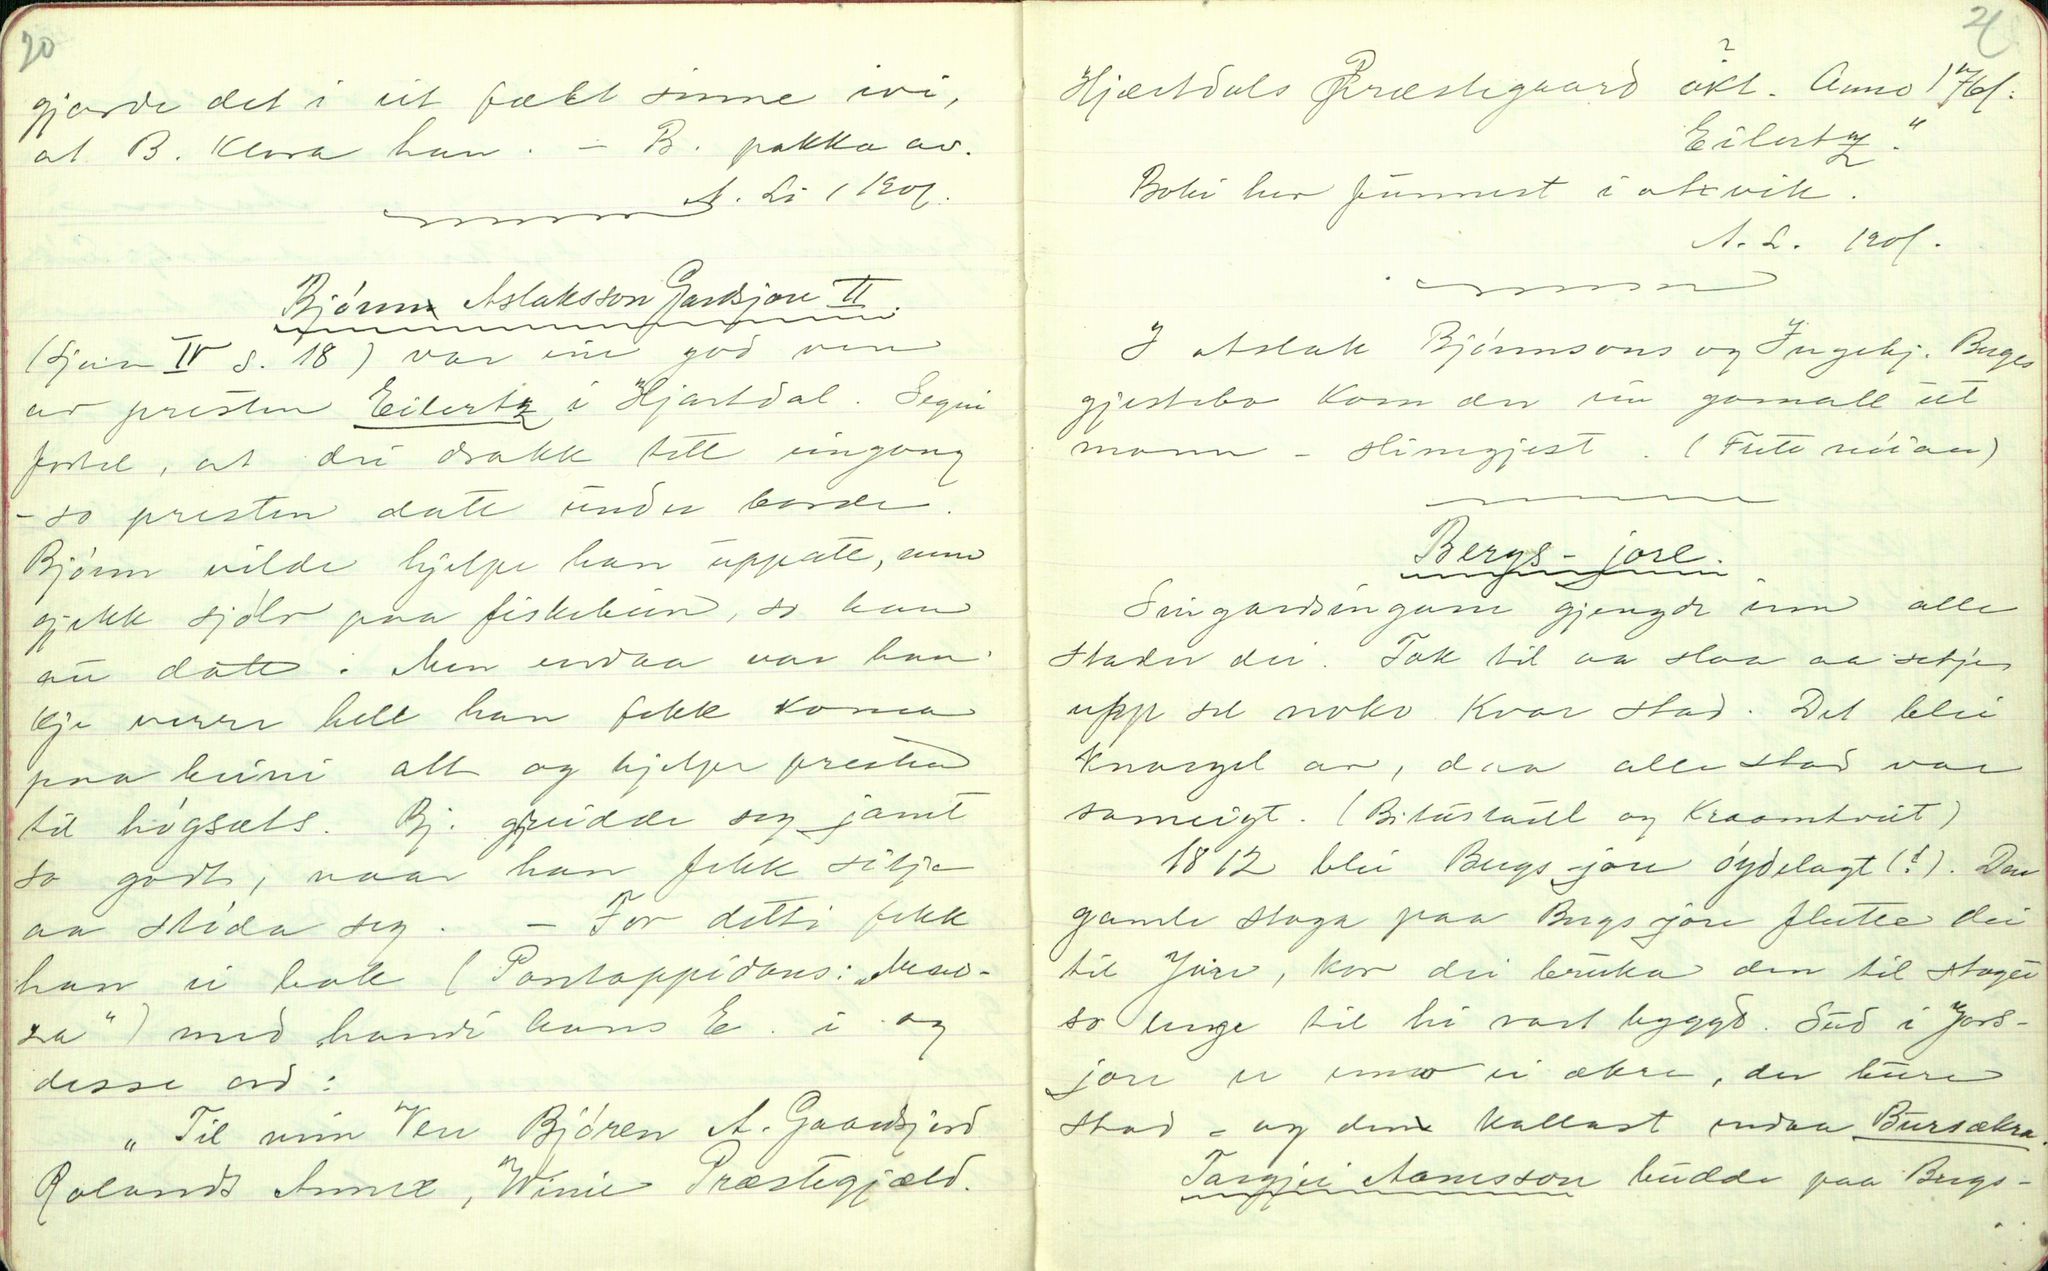 20
gjorde det i eit fækt sinne ivi,
at B. klora han. - B. pakka av.
A. Li 1901.
Bjørnn Aslaksson Gardsjore II.
(Sjaa IV s. 18) var ein god ven
av presten Eilertz i Hjartdal. Segni
fortel, at dei drakk tett eingong
- so presten datt under borde.
Bjørn vilde hjelpe han uppatt, men
gjekk sjølv paa fiskebein, so han
au datt. Men endaa var han
kje verre hell han fekk koma
paa beini att og hjelpe presten
til høgsæts. Bj. greidde seg jamt
so godt, naar han fekk sitja
aa stida seg. - For detti fekk
han ei bok (Pontoppidans: "Meno-
za") med handi hans E. i og
desse ord:
"Til min Ven Bjøren A. Gaardsjord
Rolands Annex, Winie Præstegjæld.
21
Hjærtdals Præstegaard ? økt. Anno 1761.
Eilertz."
Boki her funnest i Atrvik.
A. L. 1901.
I Aslak Bjørnsons og Ingebj. Bergs
gjestebo kom der ein gomall ut
mann - slimgjest. (Fute nøiaa)
Bergs-jore.
Sungardsingane gjengde inn alle
stader dei. Tok til aa slaa aa setje
upp sel noko kvar stad. Det blei
knargel av, daa alle stad var
sameigt. (Bitustadl og Kraamtveit)
1812 blei Bergsjore øydelagt (?). Den
gamle stoga paa Bergsjore flutte dei
til Jore, kor dei bruka den til stogu
so lenge til hi vart bygd. Sud i Jors-
jore er ei ækre, der bure
stod - og den kallast endaa Bursækra.
Targjei Aanesson budde paa Bergs-